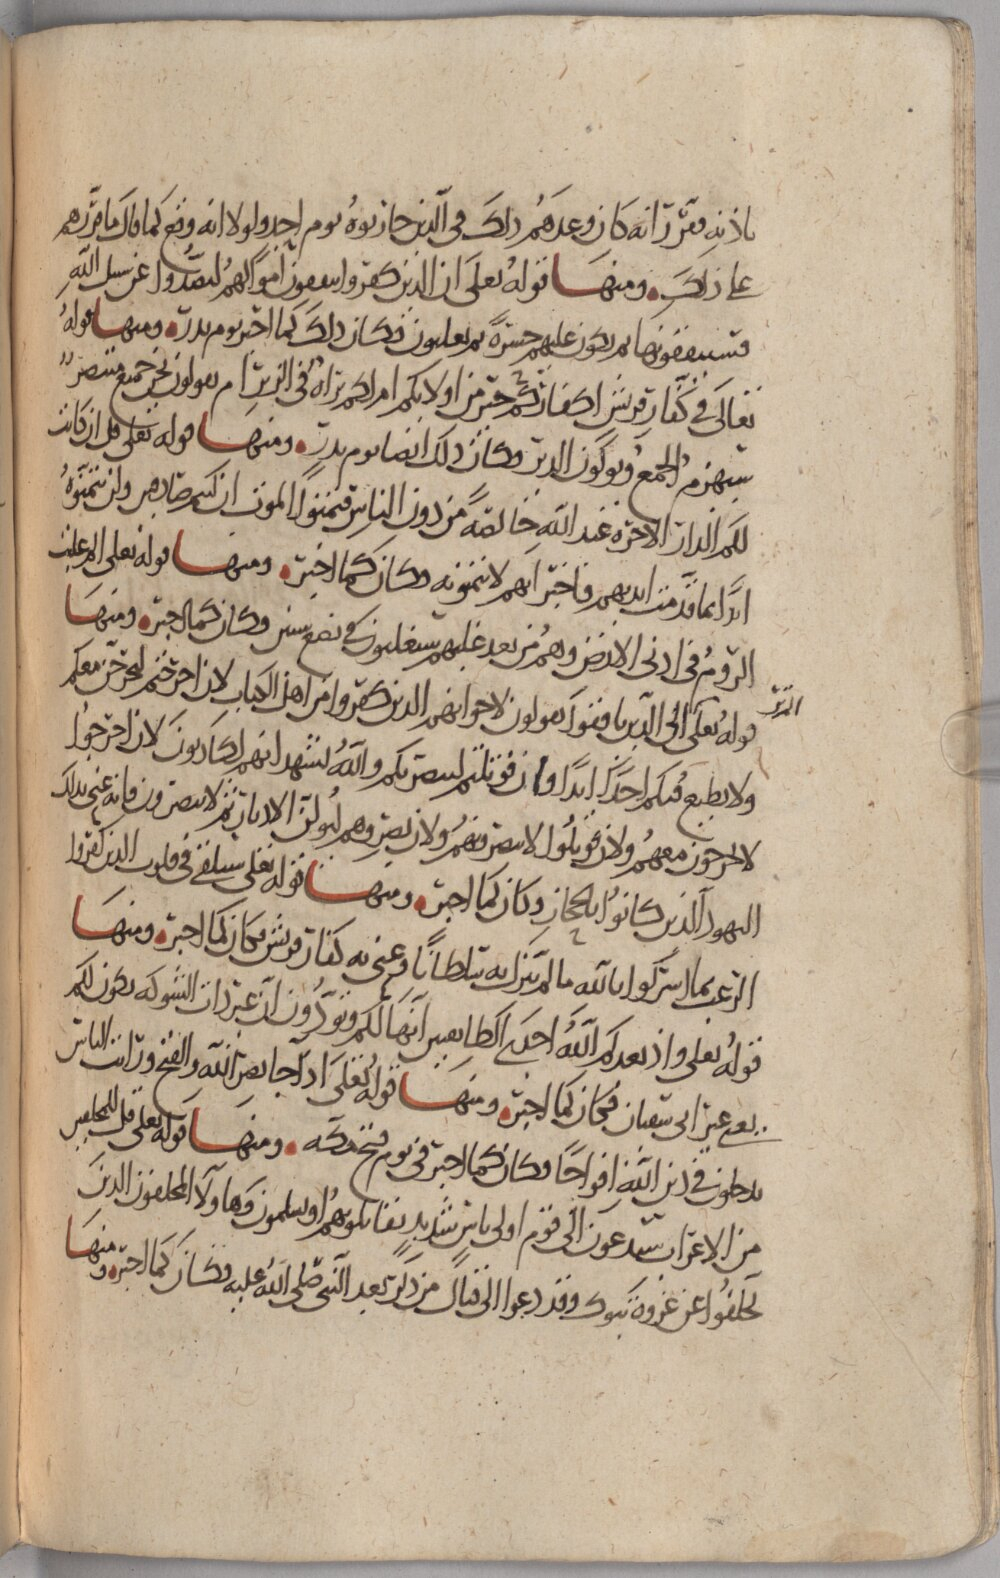 باذنه فقرر انه كان وعدهم ذلك في الذين حاربوه يوم احد ولولا انه وقع كما قال ما قررهم
على ذلك ومنها قوله تعلى ان الذين كفروا ينفقون اموالهم ليصدوا عن سبيل الله
فسينفقونها ثم تكون عليهم حسرة ثم يغلبون فكان ذلك كما اخبر يوم بدر ومنها قوله
تعالى في كفار قريش اكفاركم خير من اولائكم ام لكم براة في الزبر ام يقولون نحن جميع منتصر
سيهزم الجمع ويولون الدبر وكان ذلك ايضا يوم بدر ومنها قوله تعلى قل ان كانت
لكم الدار الاخرة عند الله خالصة من دون الناس فتمنوا الموت ان كنتم صادقين ولن يتمنوه
ابدا بما قدمت ايديهم فاخبر انهم لا يتمنونه وكان كما اخبر ومنها قوله تعلى الم غلبت
الروم في ادنى الارض وهم من بعد غلبهم سيغلبون في بضع سنين وكان كما اخبر ومنها
قوله تعلى الم تر الى الذين نافقوا يقولون لاخوانهم الذين كفروا من اهل الكتاب لان اخرجتم لنخرجن معكم
ولا نطيع فيكم احدا ابدا وان قوتلتم لننصرنكم والله يشهد انهم لكاذبون لان اخرجوا
لا يخرجون معهم ولان قوتلوا لا ينصرونهم ولان نصروهم ليولن الادبار ثم لا ينصرون فانه عنى بذلك
اليهود الذين كانوا بالحجاز وكان كما اخبر ومنها قوله تعلى سنلقي في قلوب الذين كفروا
الرعب بما اشركوا بالله ما لم ينزل به سلطانا وعنى به كفار قريش فكان كما اخبر ومنها
قوله تعلى واذ يعدكم الله احدى الطايفتين انها لكم وتودون ان غير ذات الشوكة تكون لكم
يعني عير ابي سفيان فكان كما اخبر ومنها قوله تعلى اذا جا نصر الله والفتح ورايت الناس
يدخلون في دين الله افواجا وكان كما اخبر في يوم فتح مكة ومنها قوله تعلى قل للمخلفين
من الاعراب ستدعون الى قوم اولي باس شديد تقاتلونهم او يسلمون وهاولا المخلفون الذين
تخلفوا عن غزوة تبوك وقد دعوا الى قتال من ذكر بعد النبي صلى الله عليه وكان كما اخبر ومنها